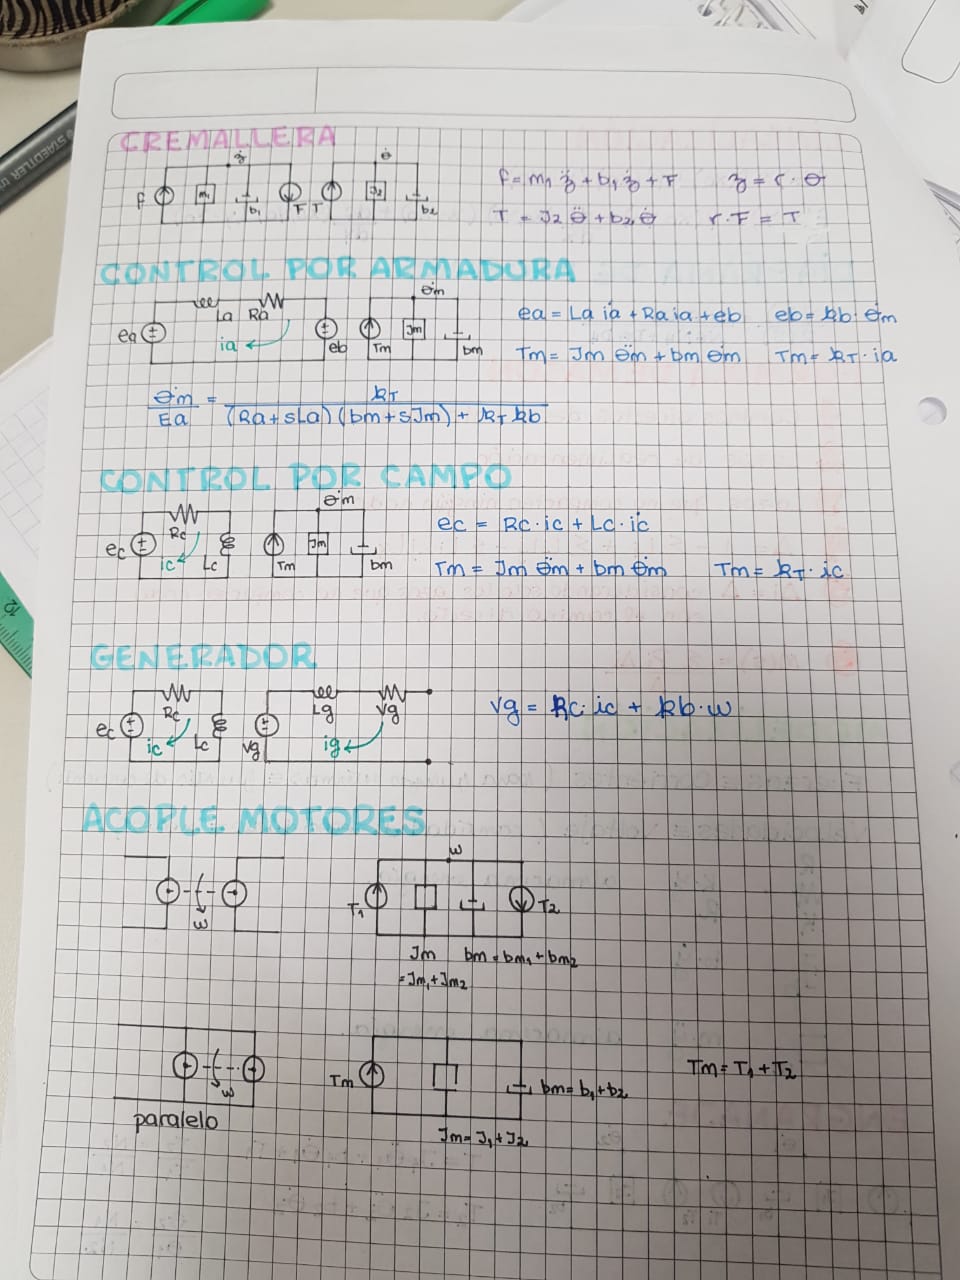 CREMALLERA
ż
f m₁ b₁ F T J₂ b₂
θ̇
f = m₁ z̈ + b₁ ż + F z = r · θ
T = J₂ θ̈ + b₂ θ̇ r · F = T
CONTROL POR ARMADURA
ea La Ra ia eb Tm θ̇m Jm bm
ea = La i̇a + Ra ia + eb eb = kb · θ̇m
Tm = Jm θ̈m + bm θ̇m Tm = kT · ia
θ̇m / Ea = kT / (Ra + sLa) (bm + sJm) + kT kb
CONTROL POR CAMPO
ec Rc ic Lc Tm θ̇m Jm bm
ec = Rc · ic + Lc · i̇c
Tm = Jm θ̈m + bm θ̇m Tm = kT · ic
GENERADOR
ec Rc ic Lc vg Lg Vg ig
vg = Rc · ic + kb · w
ACOPLE MOTORES
w
w T₁ T₂
Jm bm = bm₁ + bm₂
= Jm₁ + Jm₂
w Tm bm = b₁ + b₂ Tm = T₁ + T₂
paralelo
Jm = J₁ + J₂
STAEDTLER
12